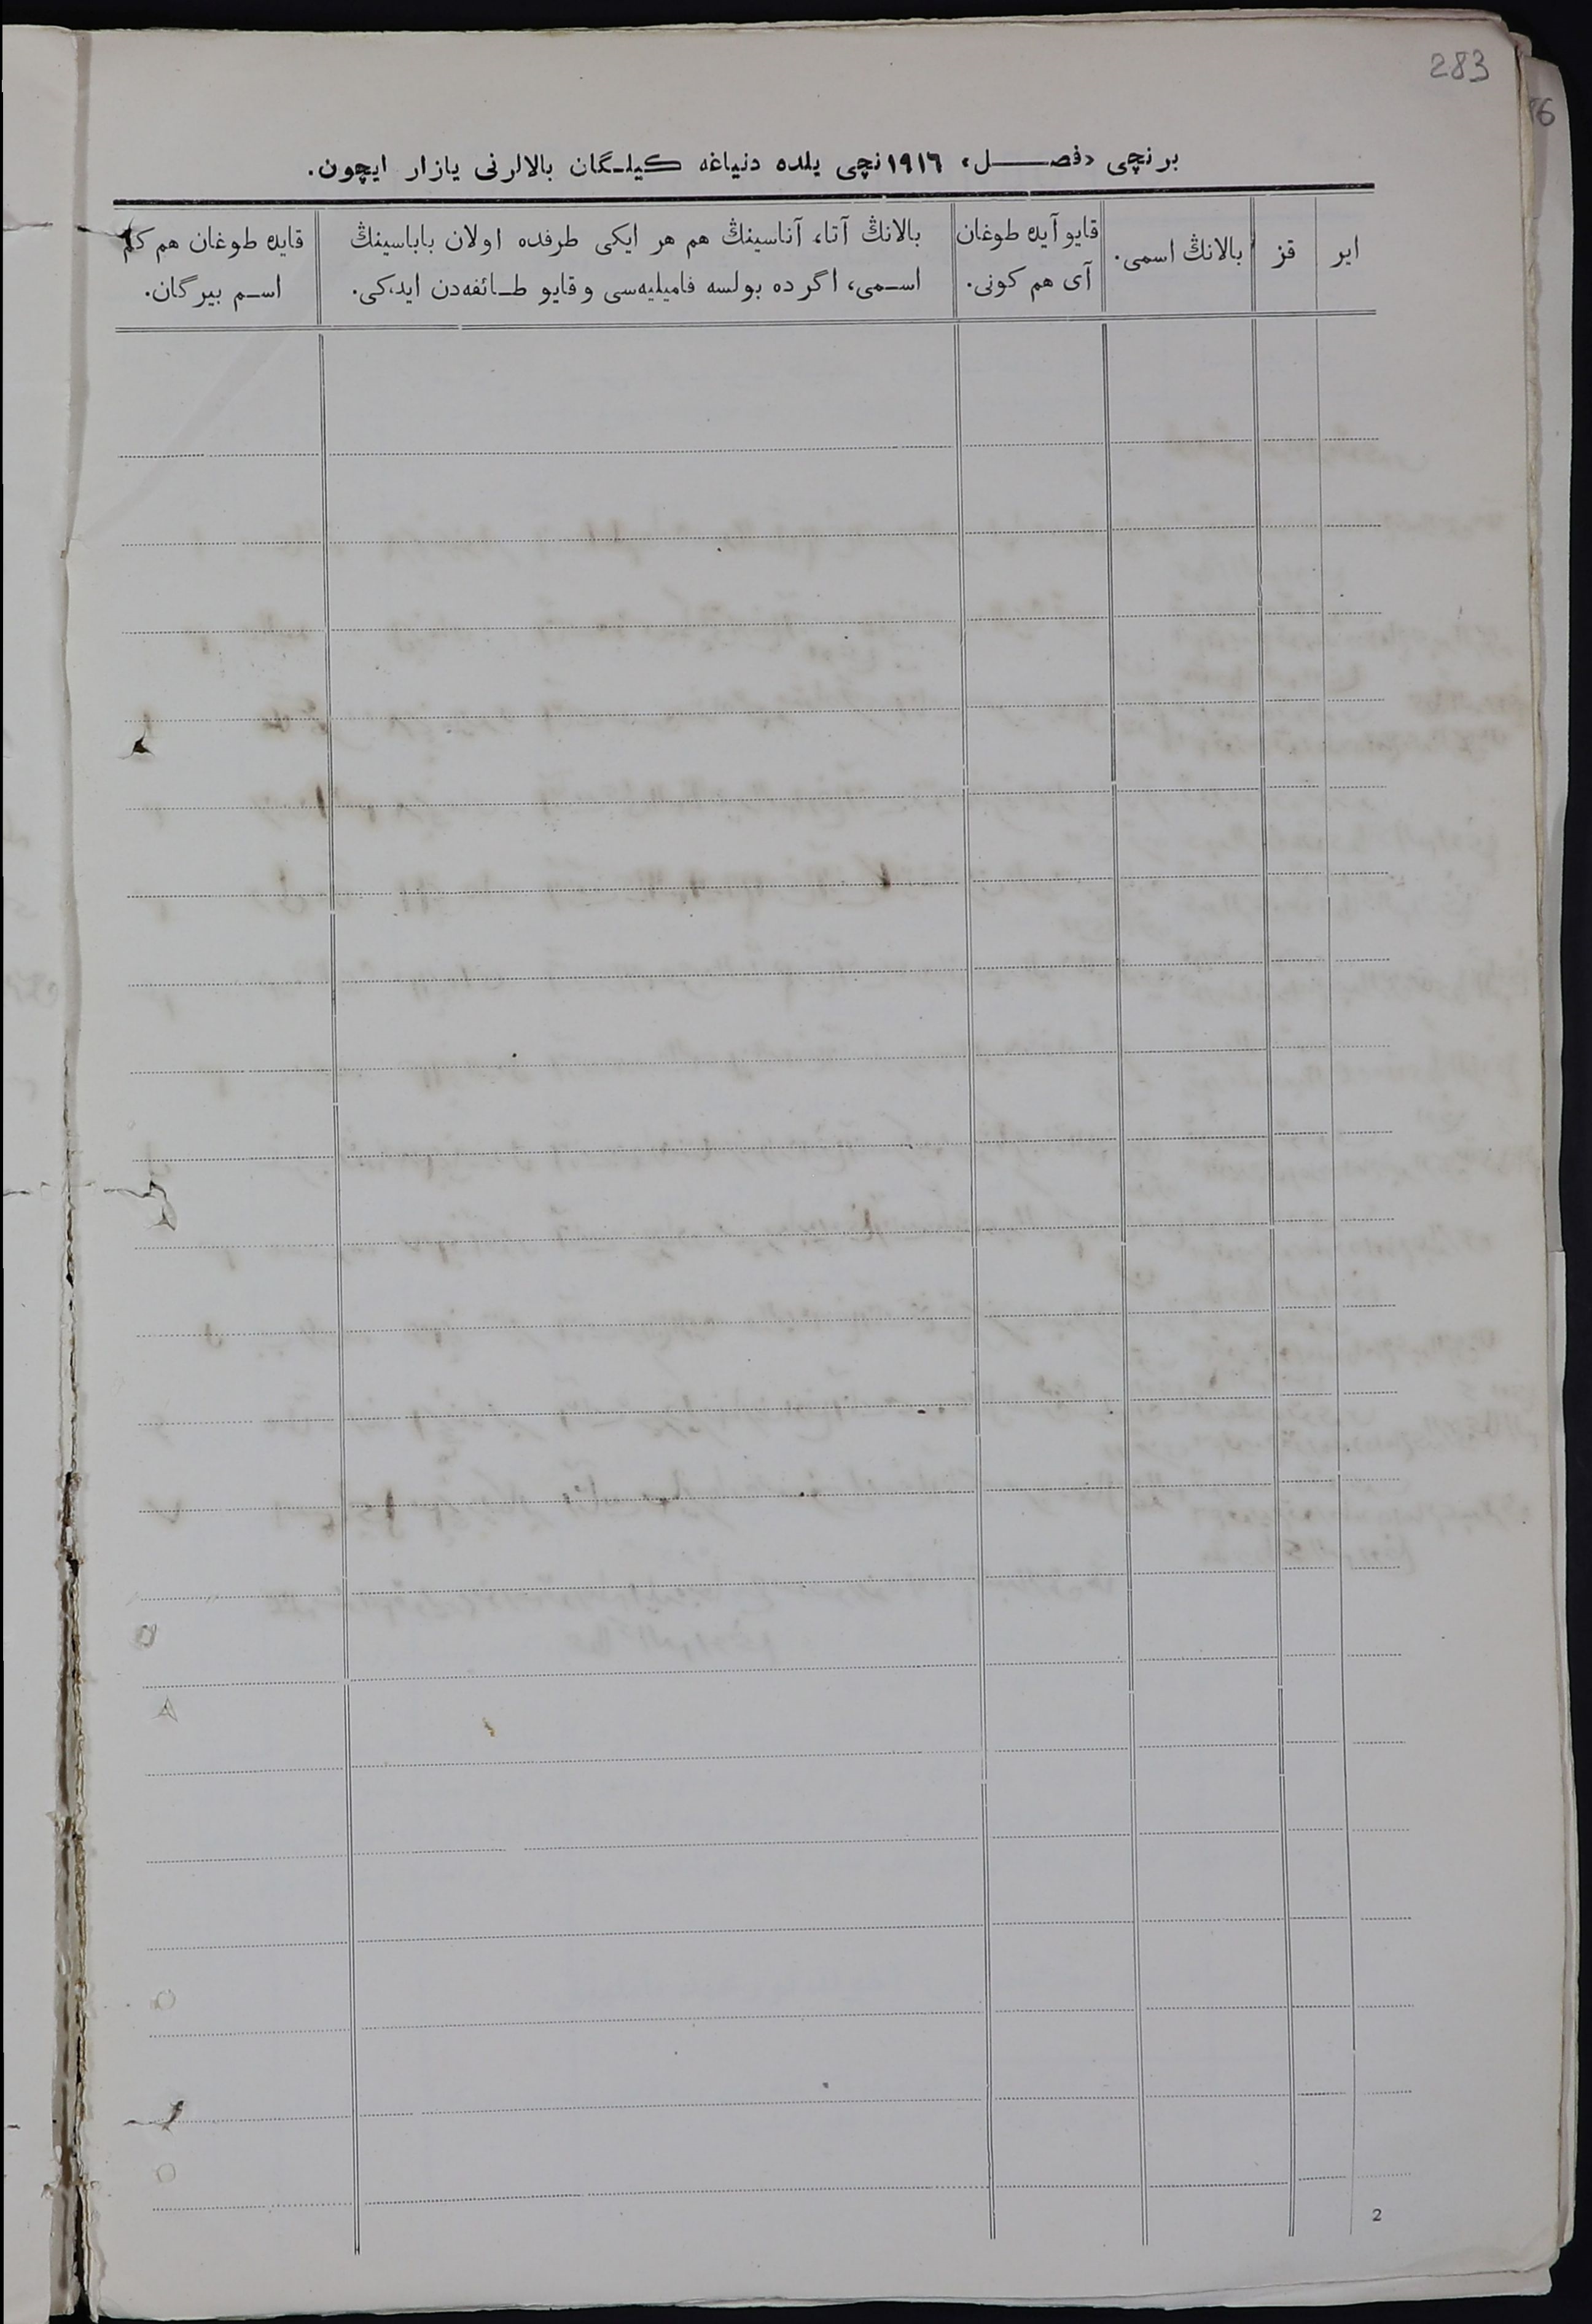 283
76
برنچی «فصل» ١٩١٦نچی یلده دنیاغه کیلگان بالالرنی یازار ایچون.
ایر
قز
بالانڭ اسمی.
قایو آیده طوغان
آی هم کونی.
بالانڭ آتا، آناسینڭ هم هر ایکی طرفده اولان باباسینڭ
اسمی، اگرده بولسه فامیلیه‌سی وقایو طائفه‌دن ایدکی.
قایده طوغان هم کم
اسم بیرگان.
2